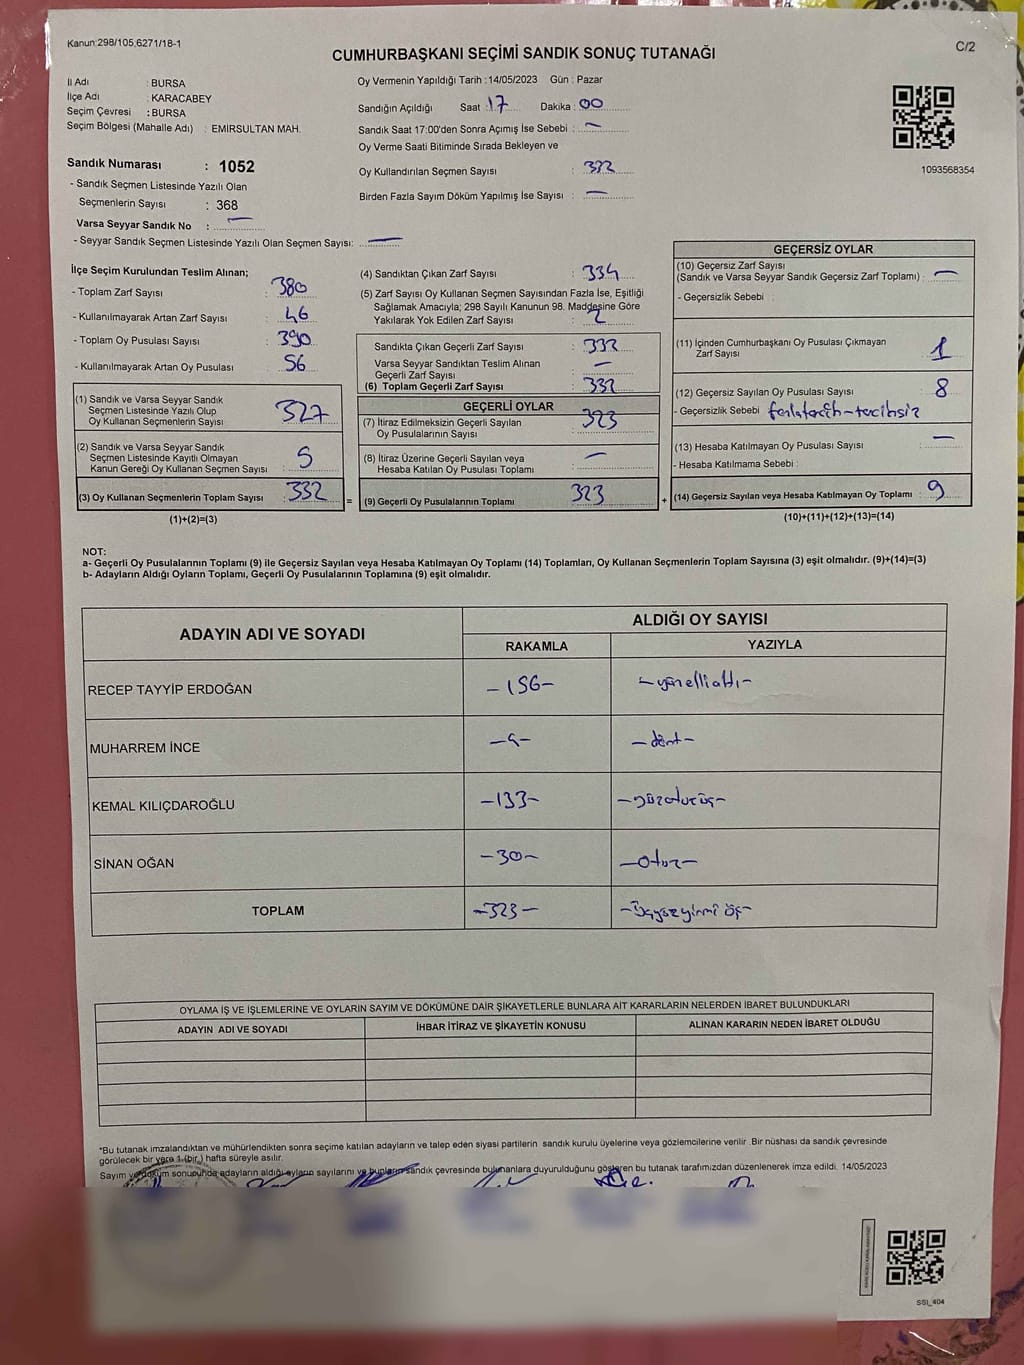 Kanun:298/105,6271/18-1
C/2
CUMHURBAŞKANI SEÇİMİ SANDIK SONUÇ TUTANAĞI
İl Adı : BURSA
İlçe Adı : KARACABEY
Seçim Çevresi : BURSA
Seçim Bölgesi (Mahalle Adı) : EMİRSULTAN MAH.
Sandık Numarası : 1052
- Sandık Seçmen Listesinde Yazılı Olan
Seçmenlerin Sayısı : 368
Varsa Seyyar Sandık No : —
- Seyyar Sandık Seçmen Listesinde Yazılı Olan Seçmen Sayısı: —
Oy Vermenin Yapıldığı Tarih :14/05/2023 Gün : Pazar
Sandığın Açıldığı Saat : 17 Dakika : 00
Sandık Saat 17:00'den Sonra Açımış İse Sebebi : —
Oy Verme Saati Bitiminde Sırada Bekleyen ve
Oy Kullandırılan Seçmen Sayısı : 332
Birden Fazla Sayım Döküm Yapılmış İse Sayısı : —
1093568354
İlçe Seçim Kurulundan Teslim Alınan;
- Toplam Zarf Sayısı : 380
- Kullanılmayarak Artan Zarf Sayısı : 46
- Toplam Oy Pusulası Sayısı : 390
- Kullanılmayarak Artan Oy Pusulası : 56
(1) Sandık ve Varsa Seyyar Sandık
Seçmen Listesinde Yazılı Olup
Oy Kullanan Seçmenlerin Sayısı : 327
(2) Sandık ve Varsa Seyyar Sandık
Seçmen Listesinde Kayıtlı Olmayan
Kanun Gereği Oy Kullanan Seçmen Sayısı : 5
(3) Oy Kullanan Seçmenlerin Toplam Sayısı : 332
(1)+(2)=(3)
(4) Sandıktan Çıkan Zarf Sayısı : 334
(5) Zarf Sayısı Oy Kullanan Seçmen Sayısından Fazla İse, Eşitliği
Sağlamak Amacıyla; 298 Sayılı Kanunun 98. Maddesine Göre
Yakılarak Yok Edilen Zarf Sayısı : 2
Sandıkta Çıkan Geçerli Zarf Sayısı : 332
Varsa Seyyar Sandıktan Teslim Alınan
Geçerli Zarf Sayısı : —
(6) Toplam Geçerli Zarf Sayısı : 332
GEÇERLİ OYLAR
(7) İtiraz Edilmeksizin Geçerli Sayılan
Oy Pusulalarının Sayısı : 323
(8) İtiraz Üzerine Geçerli Sayılan veya
Hesaba Katılan Oy Pusulası Toplamı : —
= (9) Geçerli Oy Pusulalarının Toplamı : 323
GEÇERSİZ OYLAR
(10) Geçersiz Zarf Sayısı
(Sandık ve Varsa Seyyar Sandık Geçersiz Zarf Toplamı) : —
- Geçersizlik Sebebi :
(11) İçinden Cumhurbaşkanı Oy Pusulası Çıkmayan
Zarf Sayısı : 1
(12) Geçersiz Sayılan Oy Pusulası Sayısı : 8
- Geçersizlik Sebebi
(13) Hesaba Katılmayan Oy Pusulası Sayısı : —
- Hesaba Katılmama Sebebi :
+ (14) Geçersiz Sayılan veya Hesaba Katılmayan Oy Toplamı : 9
(10)+(11)+(12)+(13)=(14)
NOT:
a- Geçerli Oy Pusulalarının Toplamı (9) ile Geçersiz Sayılan veya Hesaba Katılmayan Oy Toplamı (14) Toplamları, Oy Kullanan Seçmenlerin Toplam Sayısına (3) eşit olmalıdır. (9)+(14)=(3)
b- Adayların Aldığı Oyların Toplamı, Geçerli Oy Pusulalarının Toplamına (9) eşit olmalıdır.
ADAYIN ADI VE SOYADI ALDIĞI OY SAYISI
RAKAMLA YAZIYLA
RECEP TAYYİP ERDOĞAN -156- -yüzellialtı-
MUHARREM İNCE -4- -dört-
KEMAL KILIÇDAROĞLU -133- -yüzotuzüç-
SİNAN OĞAN -30- -otuz-
TOPLAM -323- -üçyüzyirmi üç-
OYLAMA İŞ VE İŞLEMLERİNE VE OYLARIN SAYIM VE DÖKÜMÜNE DAİR ŞİKAYETLERLE BUNLARA AİT KARARLARIN NELERDEN İBARET BULUNDUKLARI
ADAYIN ADI VE SOYADI İHBAR İTİRAZ VE ŞİKAYETİN KONUSU ALINAN KARARIN NEDEN İBARET OLDUĞU
*Bu tutanak imzalandıktan ve mühürlendikten sonra seçime katılan adayların ve talep eden siyasi partilerin sandık kurulu üyelerine veya gözlemcilerine verilir. Bir nüshası da sandık çevresinde
görülecek bir yere 1 (bir ) hafta süreyle asılır.
Sayım ve döküm sonunda adayların aldığı oyların sayılarını ve bunların sandık çevresinde bulunanlara duyurulduğunu gösteren bu tutanak tarafımızdan düzenlenerek imza edildi. 14/05/2023
SSI_404